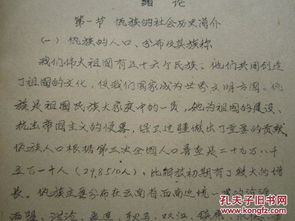 绪 论
第一节 佤族的社会历史简介
(一) 佤族的人口、分布及其族称
我们伟大祖国有五十六个民族。他们共同创造
了祖国的文化,使我们国家成为世界文明古国。佤
族是祖国民族大家庭中的一员,她为祖国的建设、
抗击帝国主义的侵略,保卫边疆做出了重要的贡献。
佤族人口根据第三次全国人口普查是二十九万八千
五百一十人(29,8510人),比解放初期有了较大的增
长。佤族主要分布在云南省西南边境
西盟、沧源、孟连、耿马、双江、镇
孔夫子旧书网